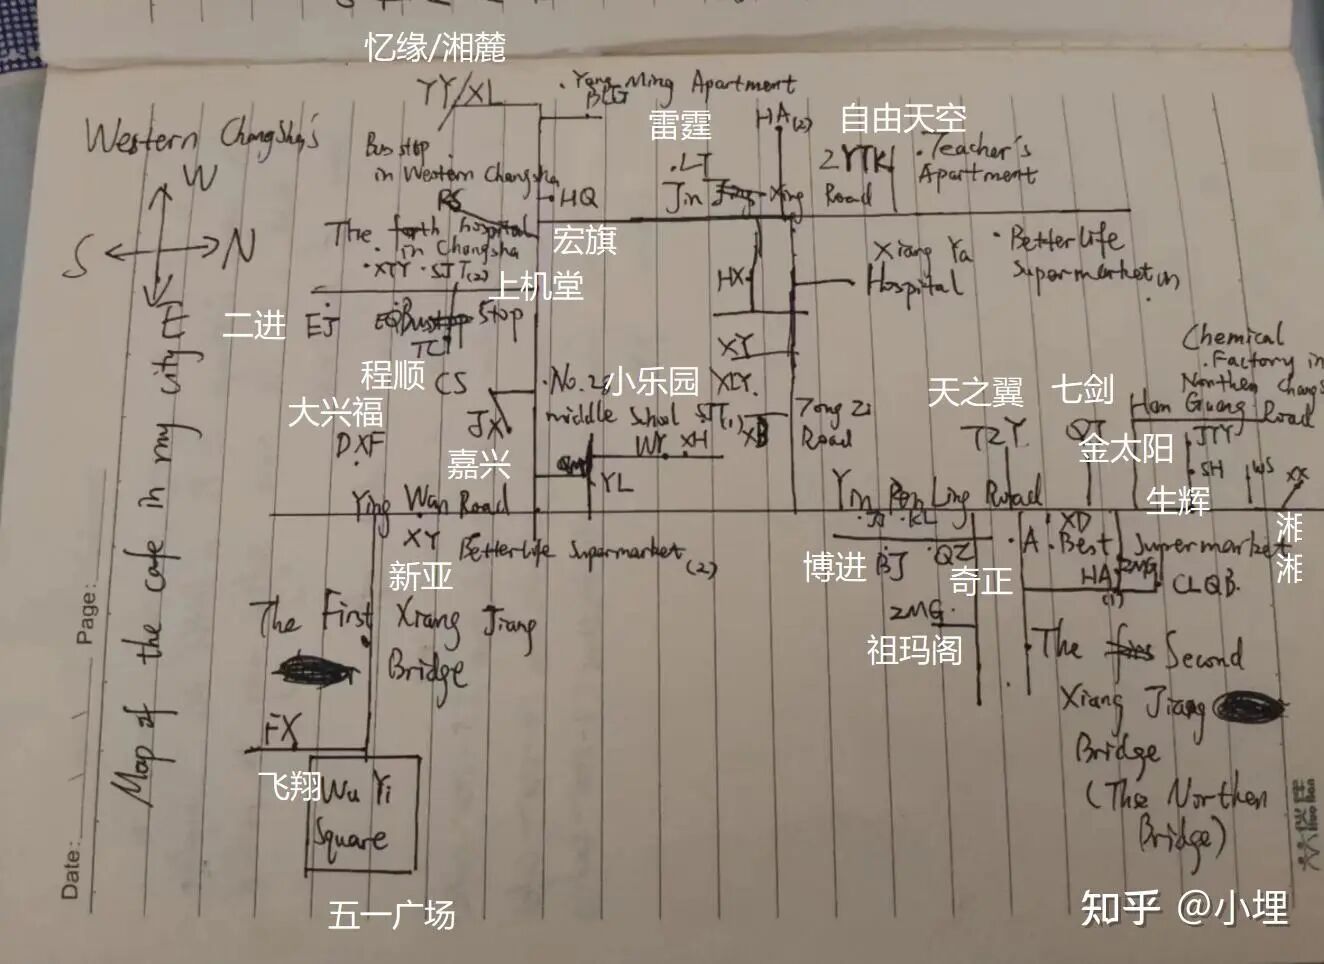 忆缘/湘麓
YY/XL
Yang Ming Apartment
BLG
雷霆
HA(2)
自由天空
Western Changsha's
W
S
N
E
Bus stop
in Western Changsha
RS
HQ
宏旗
LT
Jin Xing
ZYTK
Road
Teacher's
Apartment
The forth hospital
in Changsha
XTY
SJT(2)
上机堂
HX
Xiang Ya
Hospital
Betterlife
Supermarket(1)
二进
EJ
Bus Stop
TC
程顺
CS
大兴福
DXF
JX
嘉兴
小乐园
middle School
SJT(1)
WY
XH
YL
XY
XLY
XB
Tong Zi
Road
天之翼
TZY
七剑
QJ
金太阳
Chemical
Factory in
Northen Changsha
Han Guang Road
JTY
SH
WS
生辉
XX
湘
湘
Ying Wan Road
XY
新亚
Betterlife Supermarket(2)
Yin Pen Ling Road
KL
博进
BJ
QZ
奇正
A
XD
Best Supermarket
ZMG
HA
(1)
CLQB
ZMG
祖玛阁
The First Xiang Jiang
Bridge
The Second
Xiang Jiang
Bridge
(The Northen
Bridge)
FX
飞翔
Wu Yi
Square
五一广场
Map of the cafe in my city
Page:
Date:
知乎 @小埋